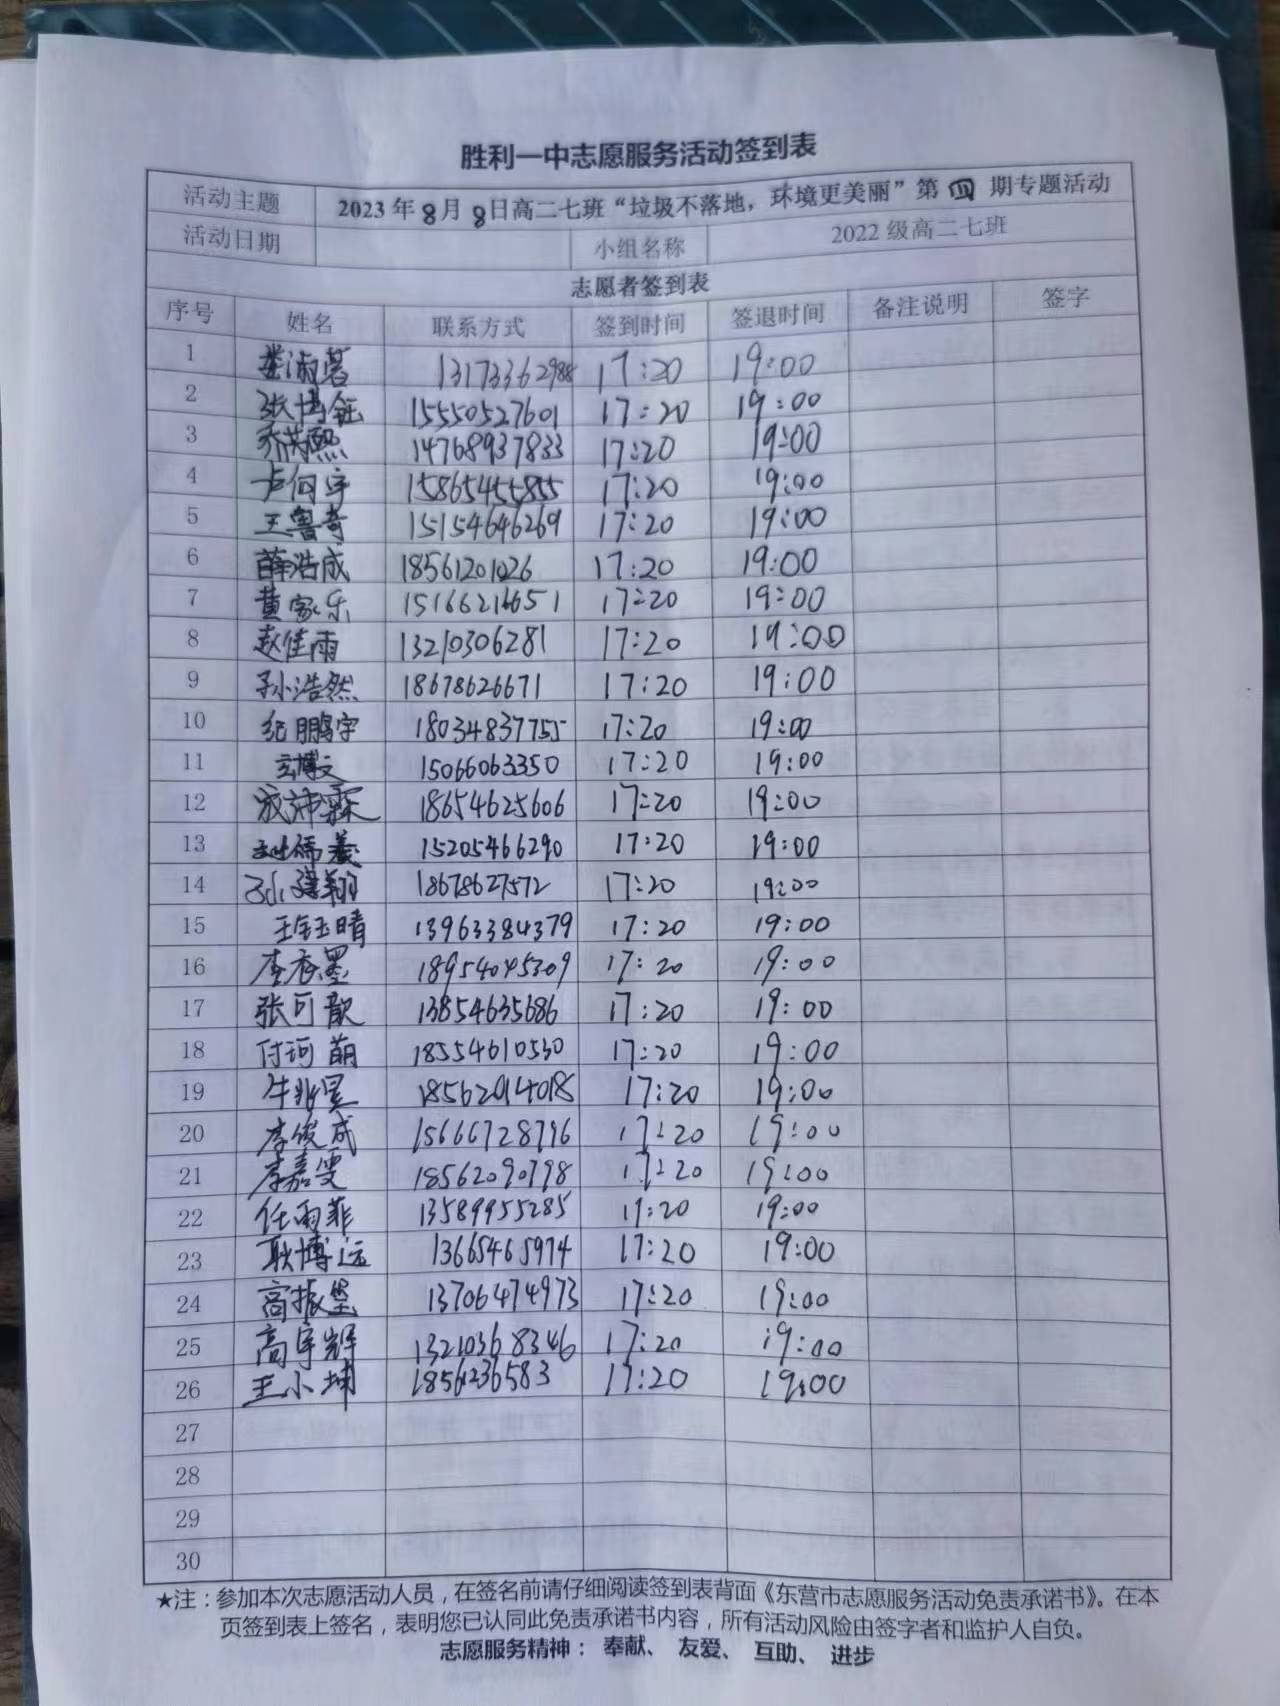 胜利一中志愿服务活动签到表
活动主题 2023年8月8日高二七班“垃圾不落地，环境更美丽”第四期专题活动
活动日期 小组名称 2022级高二七班
志愿者签到表
序号 姓名 联系方式 签到时间 签退时间 备注说明 签字
1 娄淑茗 13173362988 17:20 19:00
2 张博钰 15550527601 17:20 19:00
3 乔洪熙 14768937833 17:20 19:00
4 卢何宇 15865455855 17:20 19:00
5 王鲁奇 15154646269 17:20 19:00
6 薛浩成 18561201026 17:20 19:00
7 黄家乐 15166216651 17:20 19:00
8 赵佳雨 13210306281 17:20 19:00
9 孙浩然 18678626671 17:20 19:00
10 纪鹏宇 18034837755 17:20 19:00
11 玄博文 15066063350 17:20 19:00
12 沛霖 18654625606 17:20 19:00
13 15205466290 17:20 19:00
14 翔 18678627572 17:20 19:00
15 王钰晴 13963384379 17:20 19:00
16 李墨 18954045309 17:20 19:00
17 张可歆 13854635686 17:20 19:00
18 付珂萌 18554610530 17:20 19:00
19 牛兆昱 18562014018 17:20 19:00
20 李俊成 15666728796 17:20 19:00
21 李嘉雯 18562090798 17:20 19:00
22 任雨菲 13589955285 17:20 19:00
23 耿博远 13665465974 17:20 19:00
24 高振堡 13706474973 17:20 19:00
25 高宇辉 13210368346 17:20 19:00
26 王小坤 1856236583 17:20 19:00
27
28
29
30
★注：参加本次志愿活动人员，在签名前请仔细阅读签到表背面《东营市志愿服务活动免责承诺书》。在本
页签到表上签名，表明您已认同此免责承诺书内容，所有活动风险由签字者和监护人自负。
志愿服务精神： 奉献、 友爱、 互助、 进步